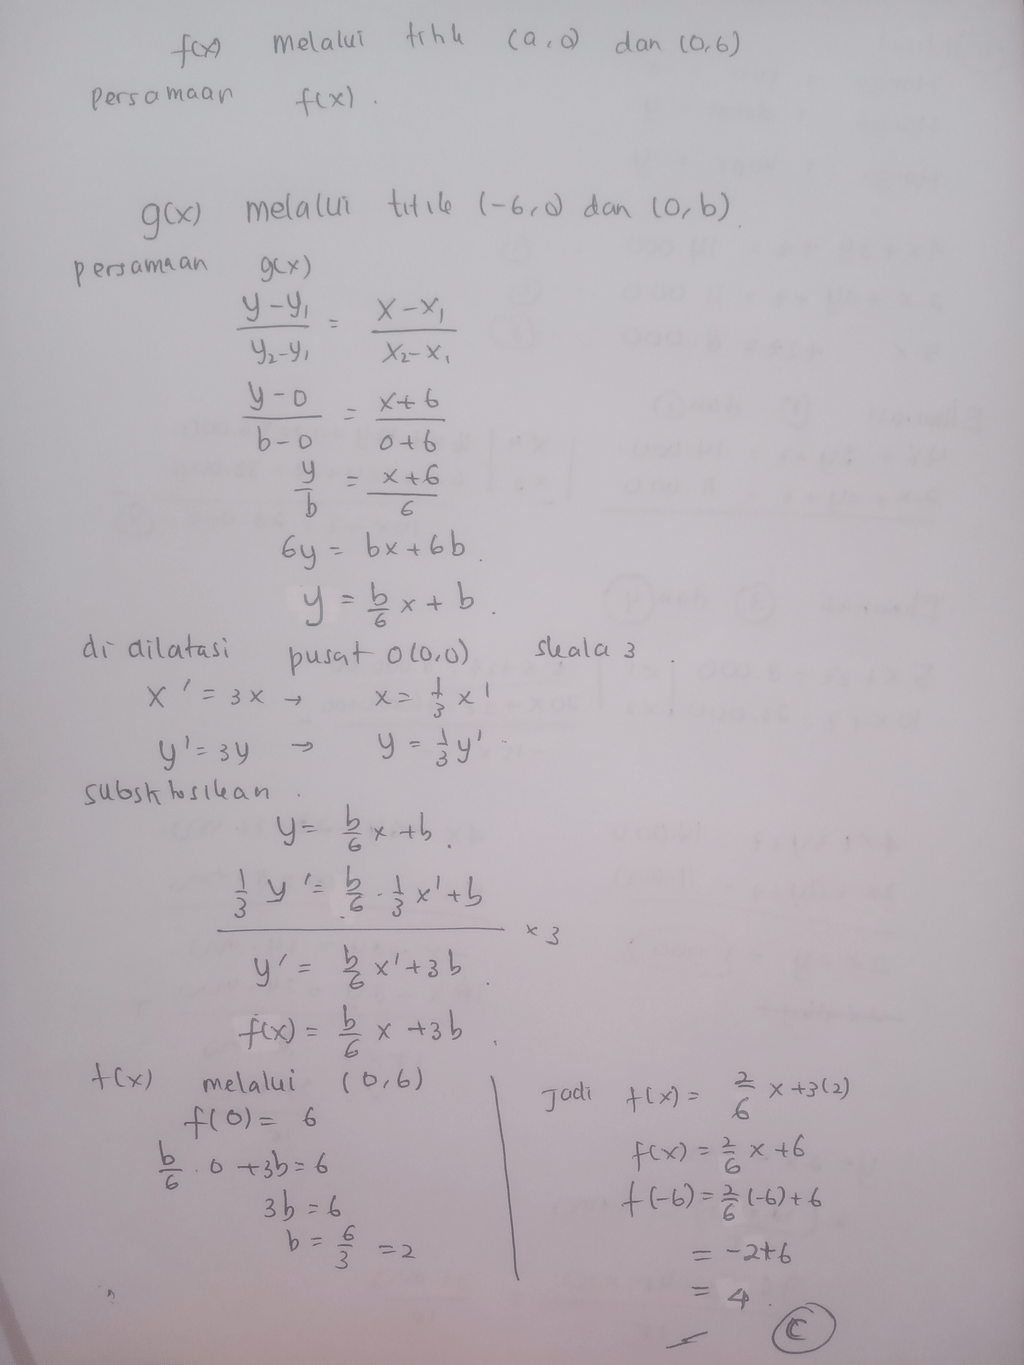 f(x) melalui titik (a,0) dan (0,6)
persamaan f(x).
g(x) melalui titik (-6,0) dan (0,b)
persamaan g(x)
(y-y₁)/(y₂-y₁) = (x-x₁)/(x₂-x₁)
(y-0)/(b-0) = (x+6)/(0+6)
y/b = (x+6)/6
6y = bx+6b.
y = b/6 x + b.
di dilatasi pusat O(0,0) skala 3.
x' = 3x → x = 1/3 x'
y' = 3y → y = 1/3 y'
substitusikan.
y = b/6 x + b.
1/3 y' = b/6 · 1/3 x' + b
× 3
y' = b/6 x' + 3b.
f(x) = b/6 x + 3b.
f(x) melalui (0,6)
f(0) = 6
b/6 . 0 + 3b = 6
3b = 6
b = 6/3 = 2
Jadi f(x) = 2/6 x + 3(2)
f(x) = 2/6 x + 6
f(-6) = 2/6 (-6) + 6
= -2+6
= 4.
C